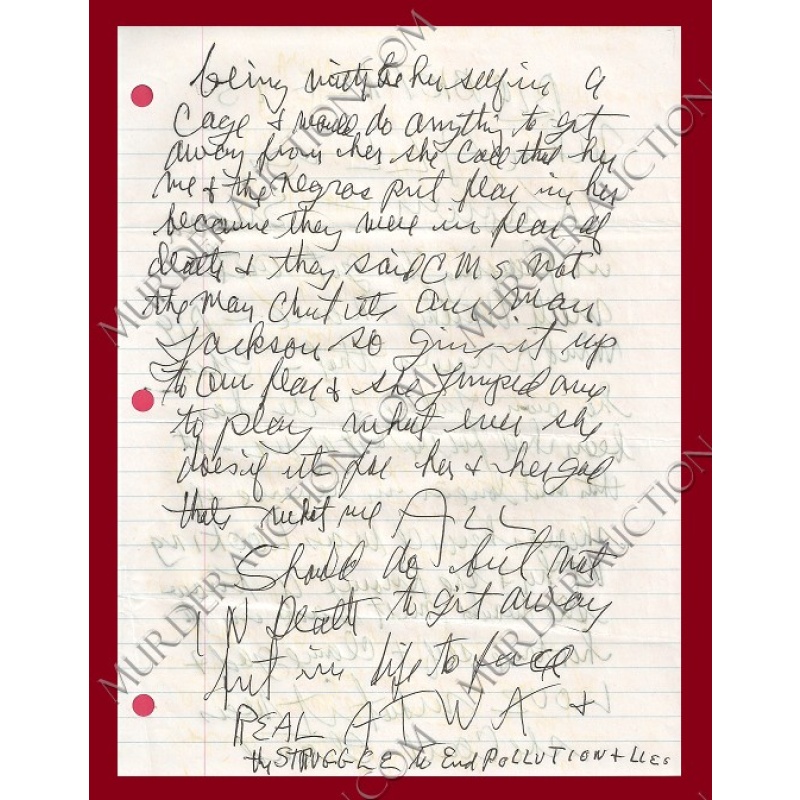 being with her self in a
cage & would do anything to get
away from her she call that her
me & the negros put fear in her
because they were in fear of
death & they said CM s not
the man but its our man
Jackson so give it up
to our fear & she jumped
to play what ever she
does if it for her & her god
that what we ALL
Should do but not
IN Death to git away
but in life to face
REAL ATWA &
the STRUGGLE to End POLLUTION + LIES
MURDERAUCTION.COM